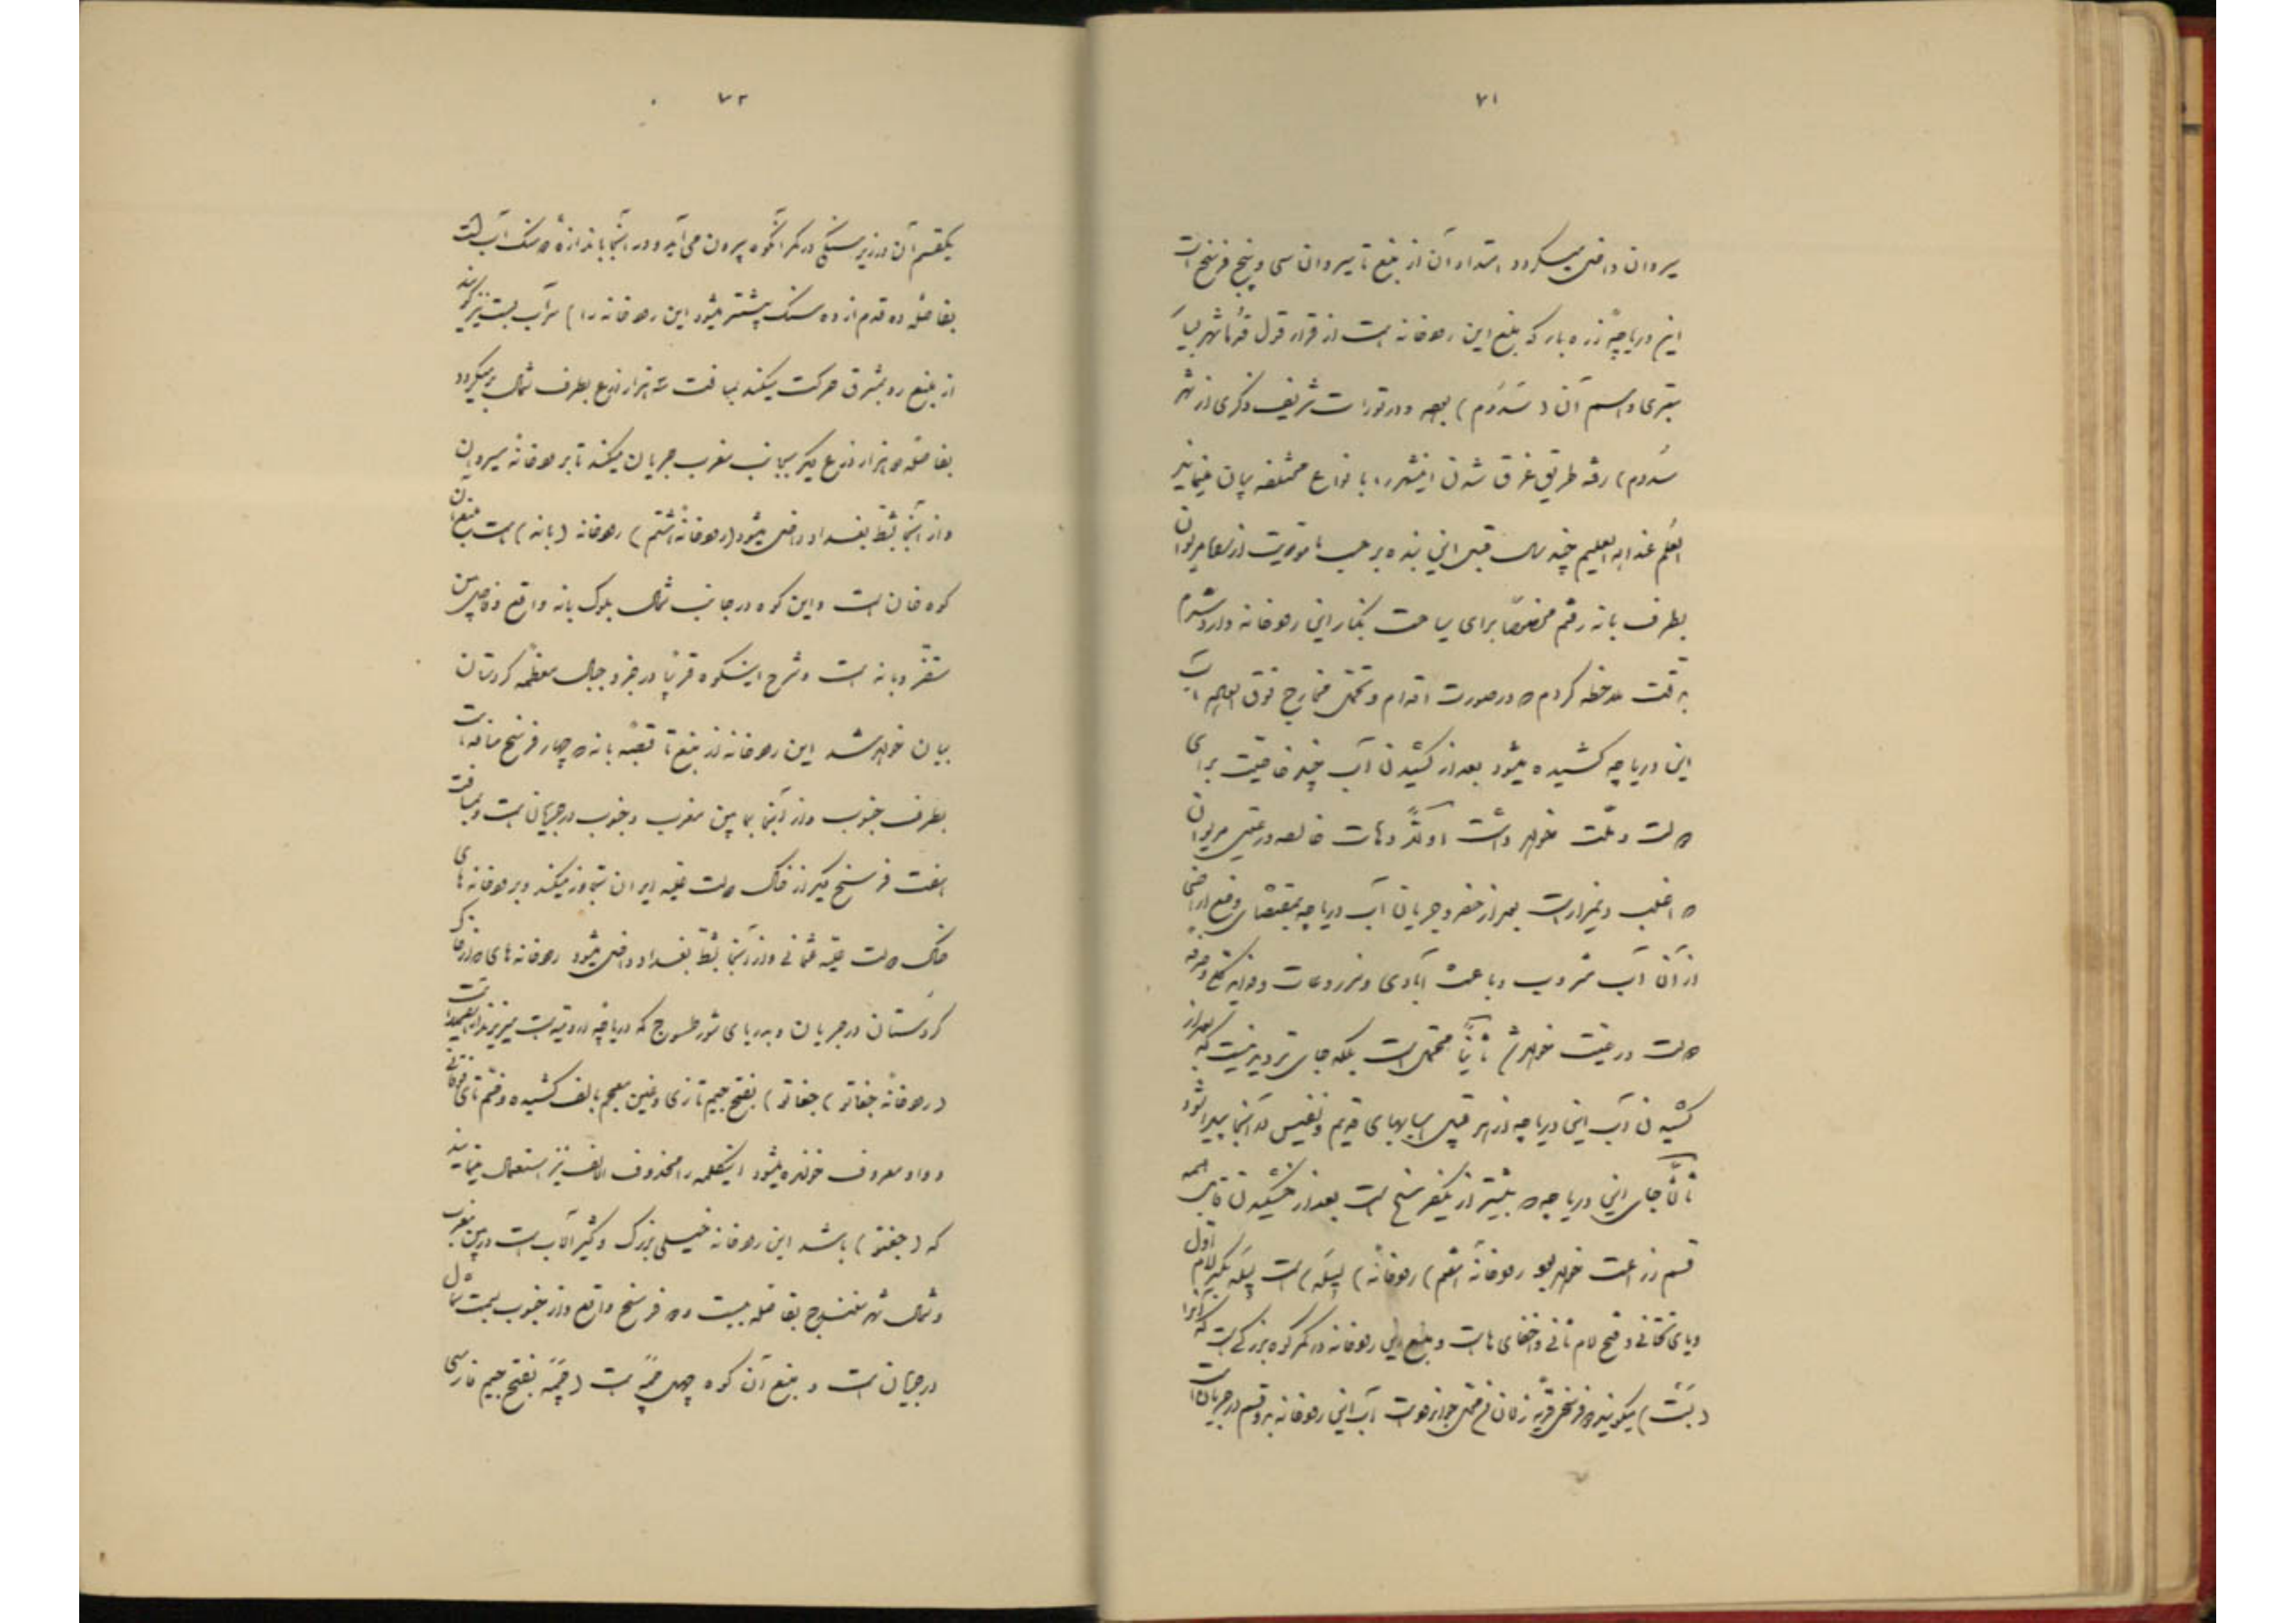 ۷۱
سیروان داخل میگردد امتداد آن از منبع تا سیروان سی و پنج فرسخ است
این دریاچهٔ زره بار که منبع این رودخانه است از قرار قول قدما شهر
و اسم آن (سَدُوم) بوده و در تورات شریف ذکری از شهر
سَدوم) رفته طریق غرق شدن اینشهر را بانواع مختلفه بیان مینمایند
العلم عند الله العلیم چند سال قبل این بنده بر حسب ماموریت از مریوان
بطرف بانه رفتم مخصوصاً برای سیاحت بکنار این رودخانه وارد شدم
به دقت ملاحظه کردم در صورت اقدام و تحمل مخارج فوق العاده آب
این دریاچه کشیده میشود بعد از کشیدن آب چند خاصیت برای
دولت و ملت خواهد داشت اولاً دهات خالصه و رعیتی مریوان
که اغلب دیم زار است بعد از حفر و جریان آب دریاچه بمقتضای وضع اراضی
از آن آب مشروب و باعث آبادی و مزروعات و فواید
دولت و رعیت خواهد شد ثانیاً محتمل است بلکه جای تردید نیست که بعد از
کشیدن آب این دریاچه از هر قبیل اسبابهای قدیم و نفیس در آنجا پیدا شود
ثالثاً جای این دریاچه که بیشتر از یکفرسخ است بعد از خشکیدن قابل همه
قسم زراعت خواهد بود رودخانهٔ هفتم) رودخانهٔ) لیله) است لیله بکسر لام اول
و یای تحتانی و فتح لام ثانی و اخفای هاست و منبع این رودخانه در کمر کوه بزرگی است که آنرا
میگویند آب این رودخانه بدو قسم در جریان است
۷۲
یکقسم آن در زیر سنگی در کمر آنکوه بیرون می آید و در آنجا باندازه ده سنگ آب است
بفاصلهٔ ده قدم از ده سنگ بیشتر میشود این رودخانه را) سرآب بست نیز گویند
از منبع رو بمشرق حرکت میکند بمسافت سه هزار ذرع بطرف شمال برمیگردد
بفاصله دو هزار ذرع دیگر بجانب مغرب جریان میکند تا برودخانه سیروان
و از آنجا بشط بغداد داخل میشود (رودخانهٔ هشتم) رودخانه (بانه) است منبع آن
کوه خان است و این کوه در جانب شمال بلوک بانه واقع و فاصل بین
سقز و بانه است و شرح اینکوه قریباً در جزو جبال معظمه کردستان
بیان خواهد شد این رودخانه از منبع تا قصبه بانه که چهار فرسخ مسافت است
بطرف جنوب و از آنجا بمابین مغرب و جنوب در جریان است و بمسافت
هفت فرسخ دیگر از خاک دولت علیه ایران تجاوز میکند و برودخانه های
خاک دولت علیه عثمانی و از آنجا بشط بغداد داخل میشود رودخانه های که در خاک
کردستان در جریان و بدریای شور طسوج که دریاچه ارومیه است میریزند
(رودخانهٔ جغاتو) جغاتو) بفتح جیم تازی و غین معجم بالف کشیده و ضم تای فوقانی
و واو معروف خوانده میشود اینکلمه را محذوف الالف نیز استعمال مینمایند
که (جغتو) باشد این رودخانه خیلی بزرگ و کثیر الآب است در بین مغرب
و شمال شهر سنندج بفاصله بیست و فرسخ واقع و از جنوب بسمت شمال
در جریان است و منبع آن کوه چهل چمه است (چمه بفتح جیم فارسی